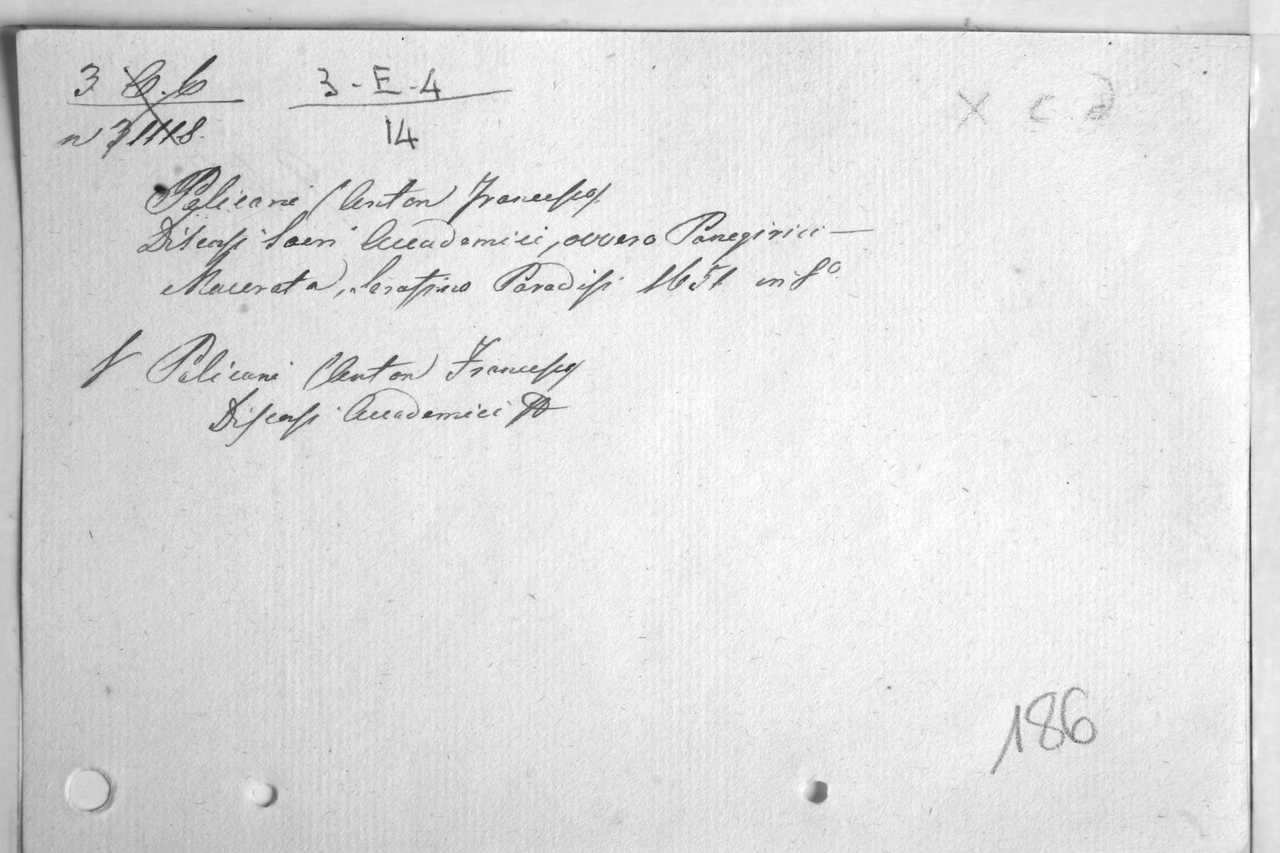 3 C. C 3-E-4
n 3 1118. 14
X C. 2
Pelicani (Anton Francesco)
Discorsi Sacri Accademici, ovvero Panegirici —
Macerata, Serafino Paradisi 1651 in 8°.
Pelicani (Anton Francesco)
Discorsi Accademici
186